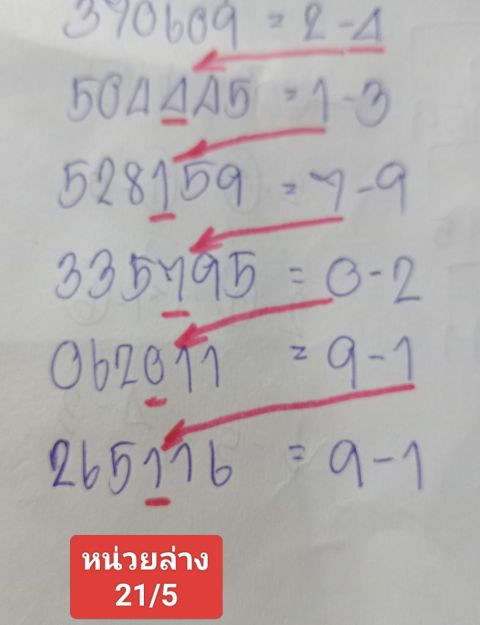 390609 = 2-4
504445 = 1-3
528159 = 7-9
335795 = 0-2
062011 = 9-1
265116 = 9-1
หน่วยล่าง
21/5